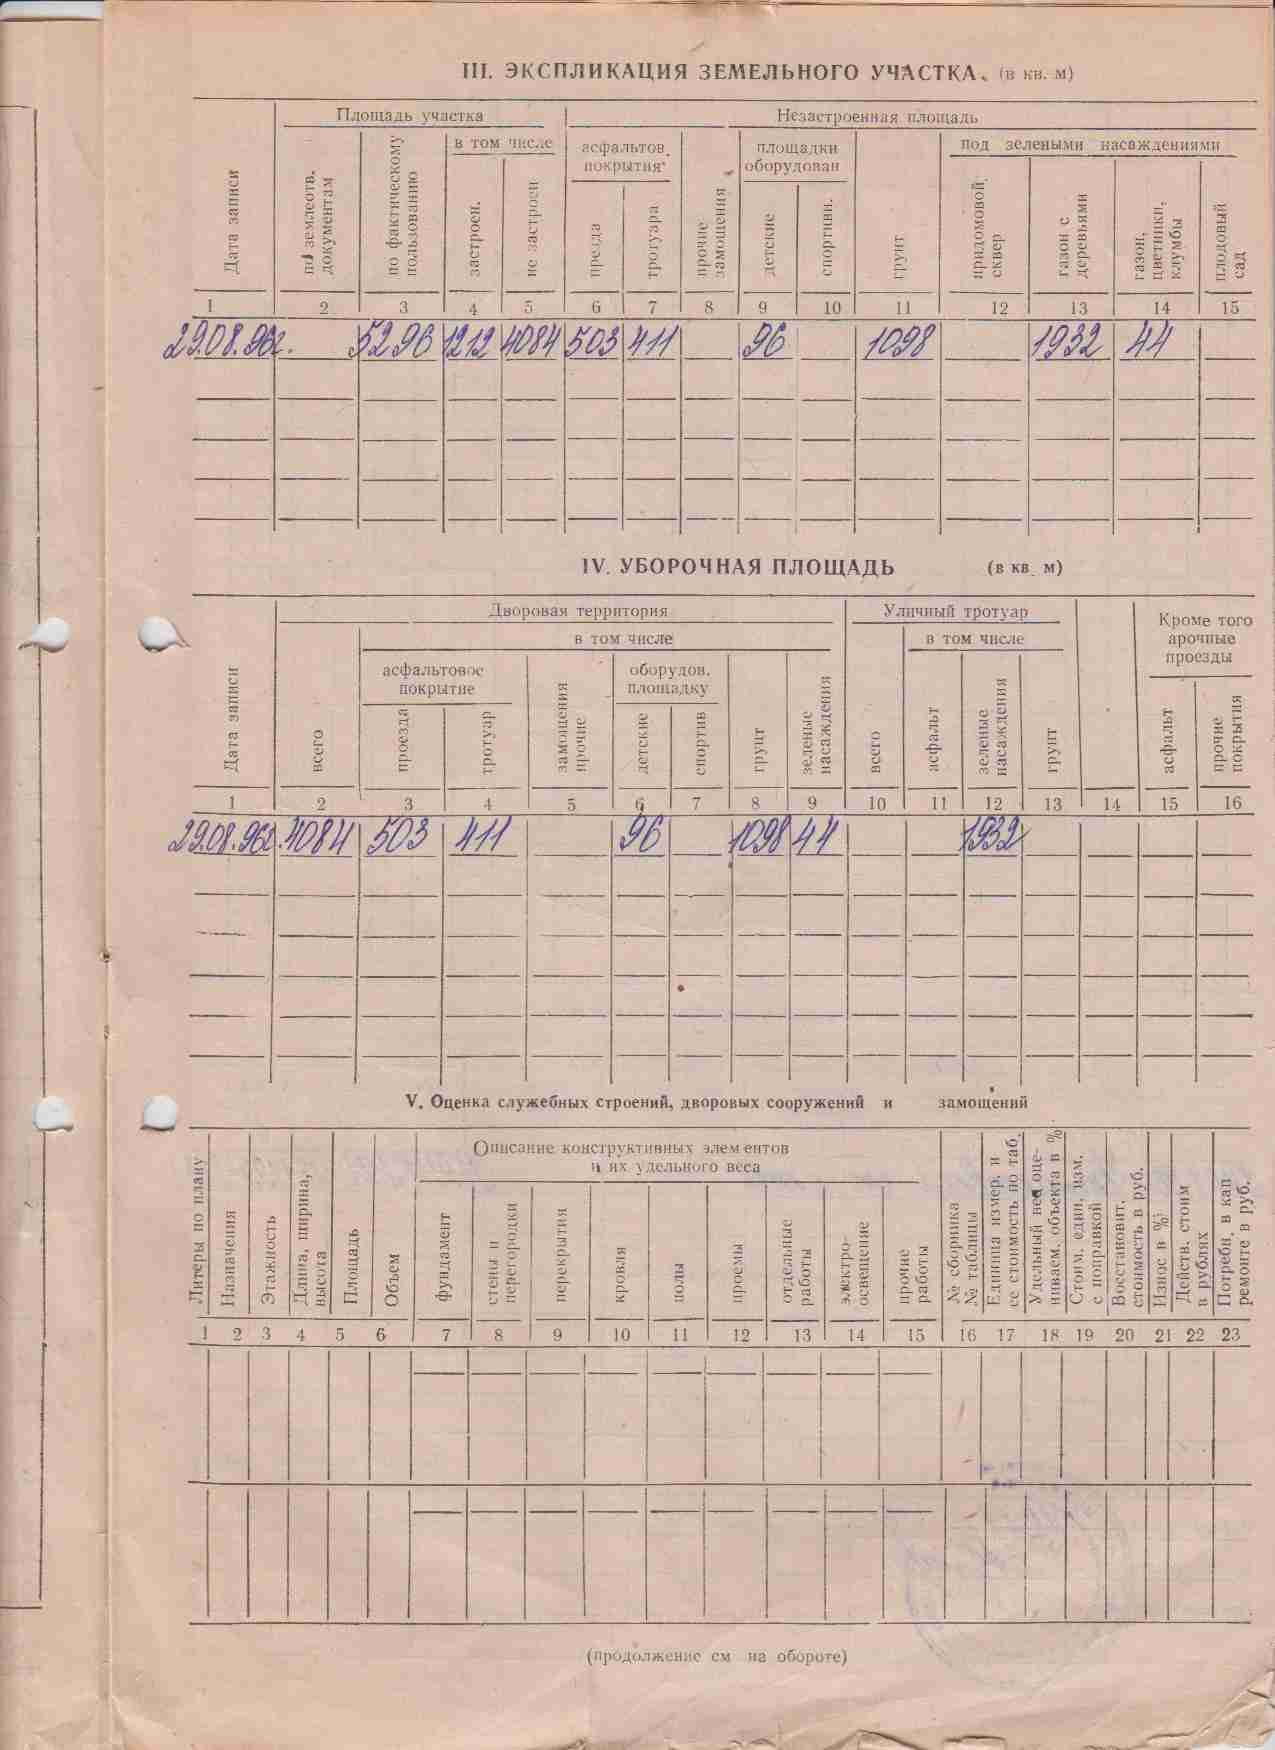 III. ЭКСПЛИКАЦИЯ ЗЕМЕЛЬНОГО УЧАСТКА. (в кв. м)
Площадь участка Незастроенная площадь
в том числе асфальтов. покрытия площадки оборудован под зелеными насаждениями
Дата записи
по землеотв. документам
по фактическому пользованию
застроен.
не застроен
презда
тротуара
прочие замощения
детские
спортивн.
грунт
придомовой сквер
газон с деревьями
газон, цветники, клумбы
плодовый сад
1 2 3 4 5 6 7 8 9 10 11 12 13 14 15
29.08.96г. 5296 1212 4084 503 411 96 1098 1932 44
IV. УБОРОЧНАЯ ПЛОЩАДЬ (в кв. м)
Дворовая территория Уличный тротуар Кроме того арочные проезды
в том числе в том числе
асфальтовое покрытие оборудов. площадку
Дата записи
всего
проезда
тротуар
замощения прочие
детские
спортив
грунт
зеленые насаждения
всего
асфальт
зеленые насаждения
грунт
асфальт
прочие покрытия
1 2 3 4 5 6 7 8 9 10 11 12 13 14 15 16
29.08.96г. 4084 503 411 96 1098 44 1932
V. Оценка служебных строений, дворовых сооружений и замощений
Описание конструктивных элементов
и их удельного веса
Литеры по плану
Назначения
Этажность
Длина, ширина, высота
Площадь
Объем
фундамент
стены и перегородки
перекрытия
кровля
полы
проемы
отдельные работы
электро-освещение
прочие работы
№ сборника № таблицы
Единица измер. и ее стоимость по таб.
Удельный вес оце-ниваем. объекта в %
Стоим. един. изм. с поправкой
Восстановит. стоимость в руб.
Износ в %
Действ. стоим в рублях
Потребн. в кап ремонте в руб.
1 2 3 4 5 6 7 8 9 10 11 12 13 14 15 16 17 18 19 20 21 22 23
(продолжение см на обороте)